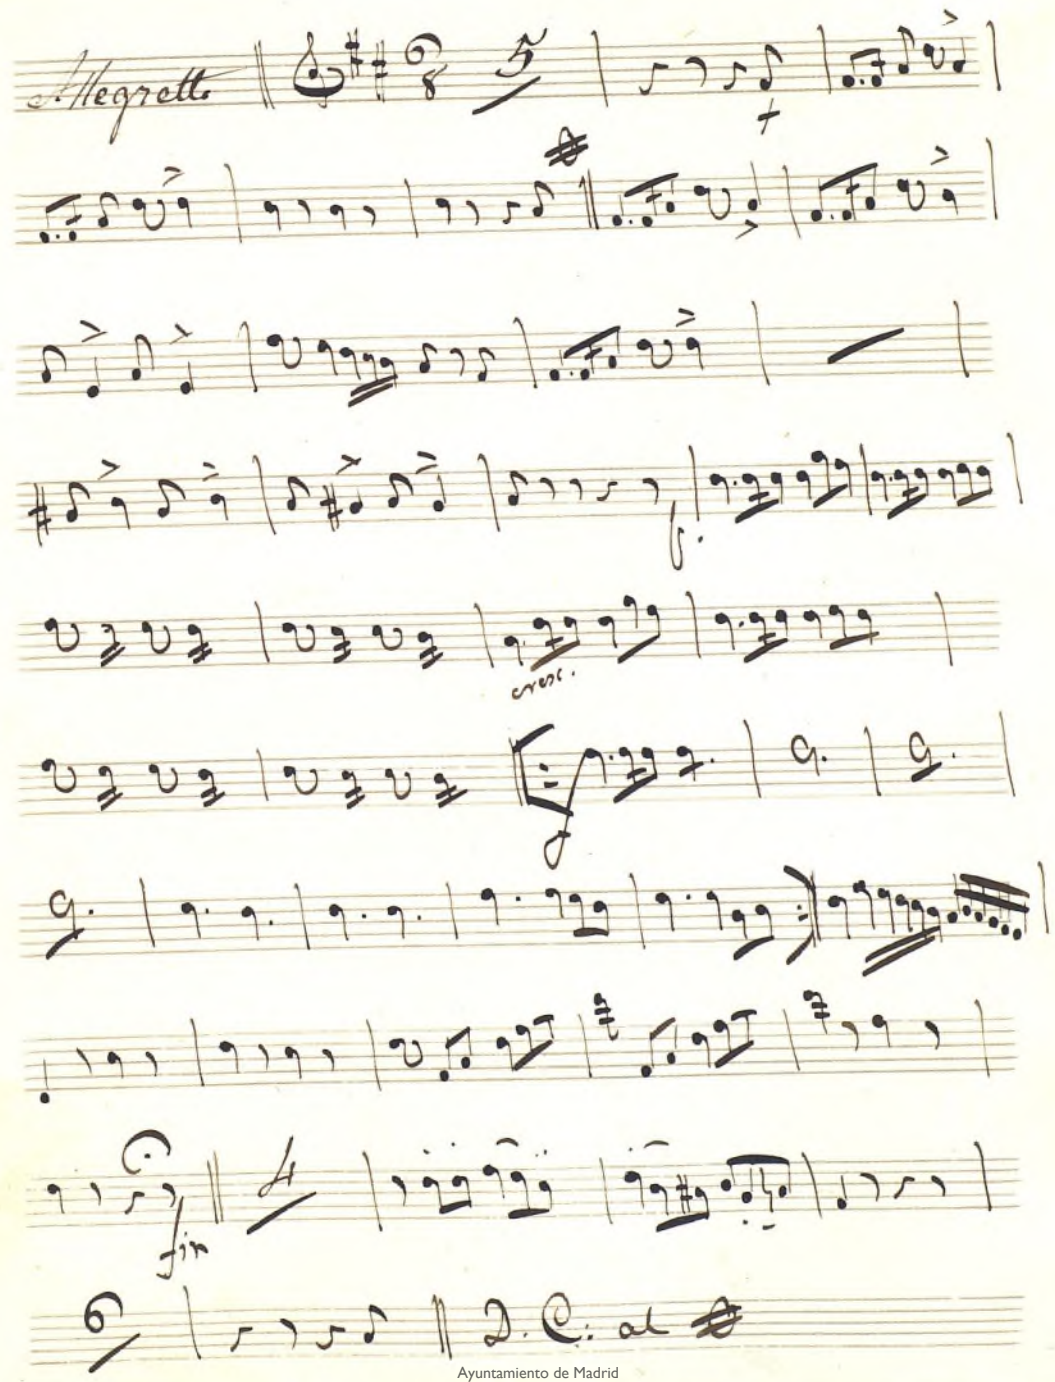 Allegretto 6 8 5
f.
cresc.
f
4
fin
6 D. C. al
Ayuntamiento de Madrid